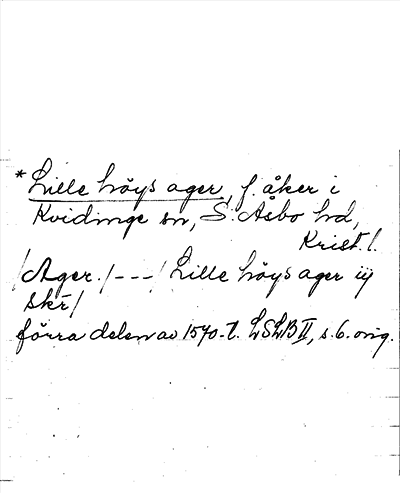 *Lille höys ager, f. åker i
Kvidinge sn, S. Åsbo hd,
Krist. l.
/Ager./ - - - / Lille höys ager iij
skr/
förra delen av 1570-t. LSLB II, s. 6. orig.